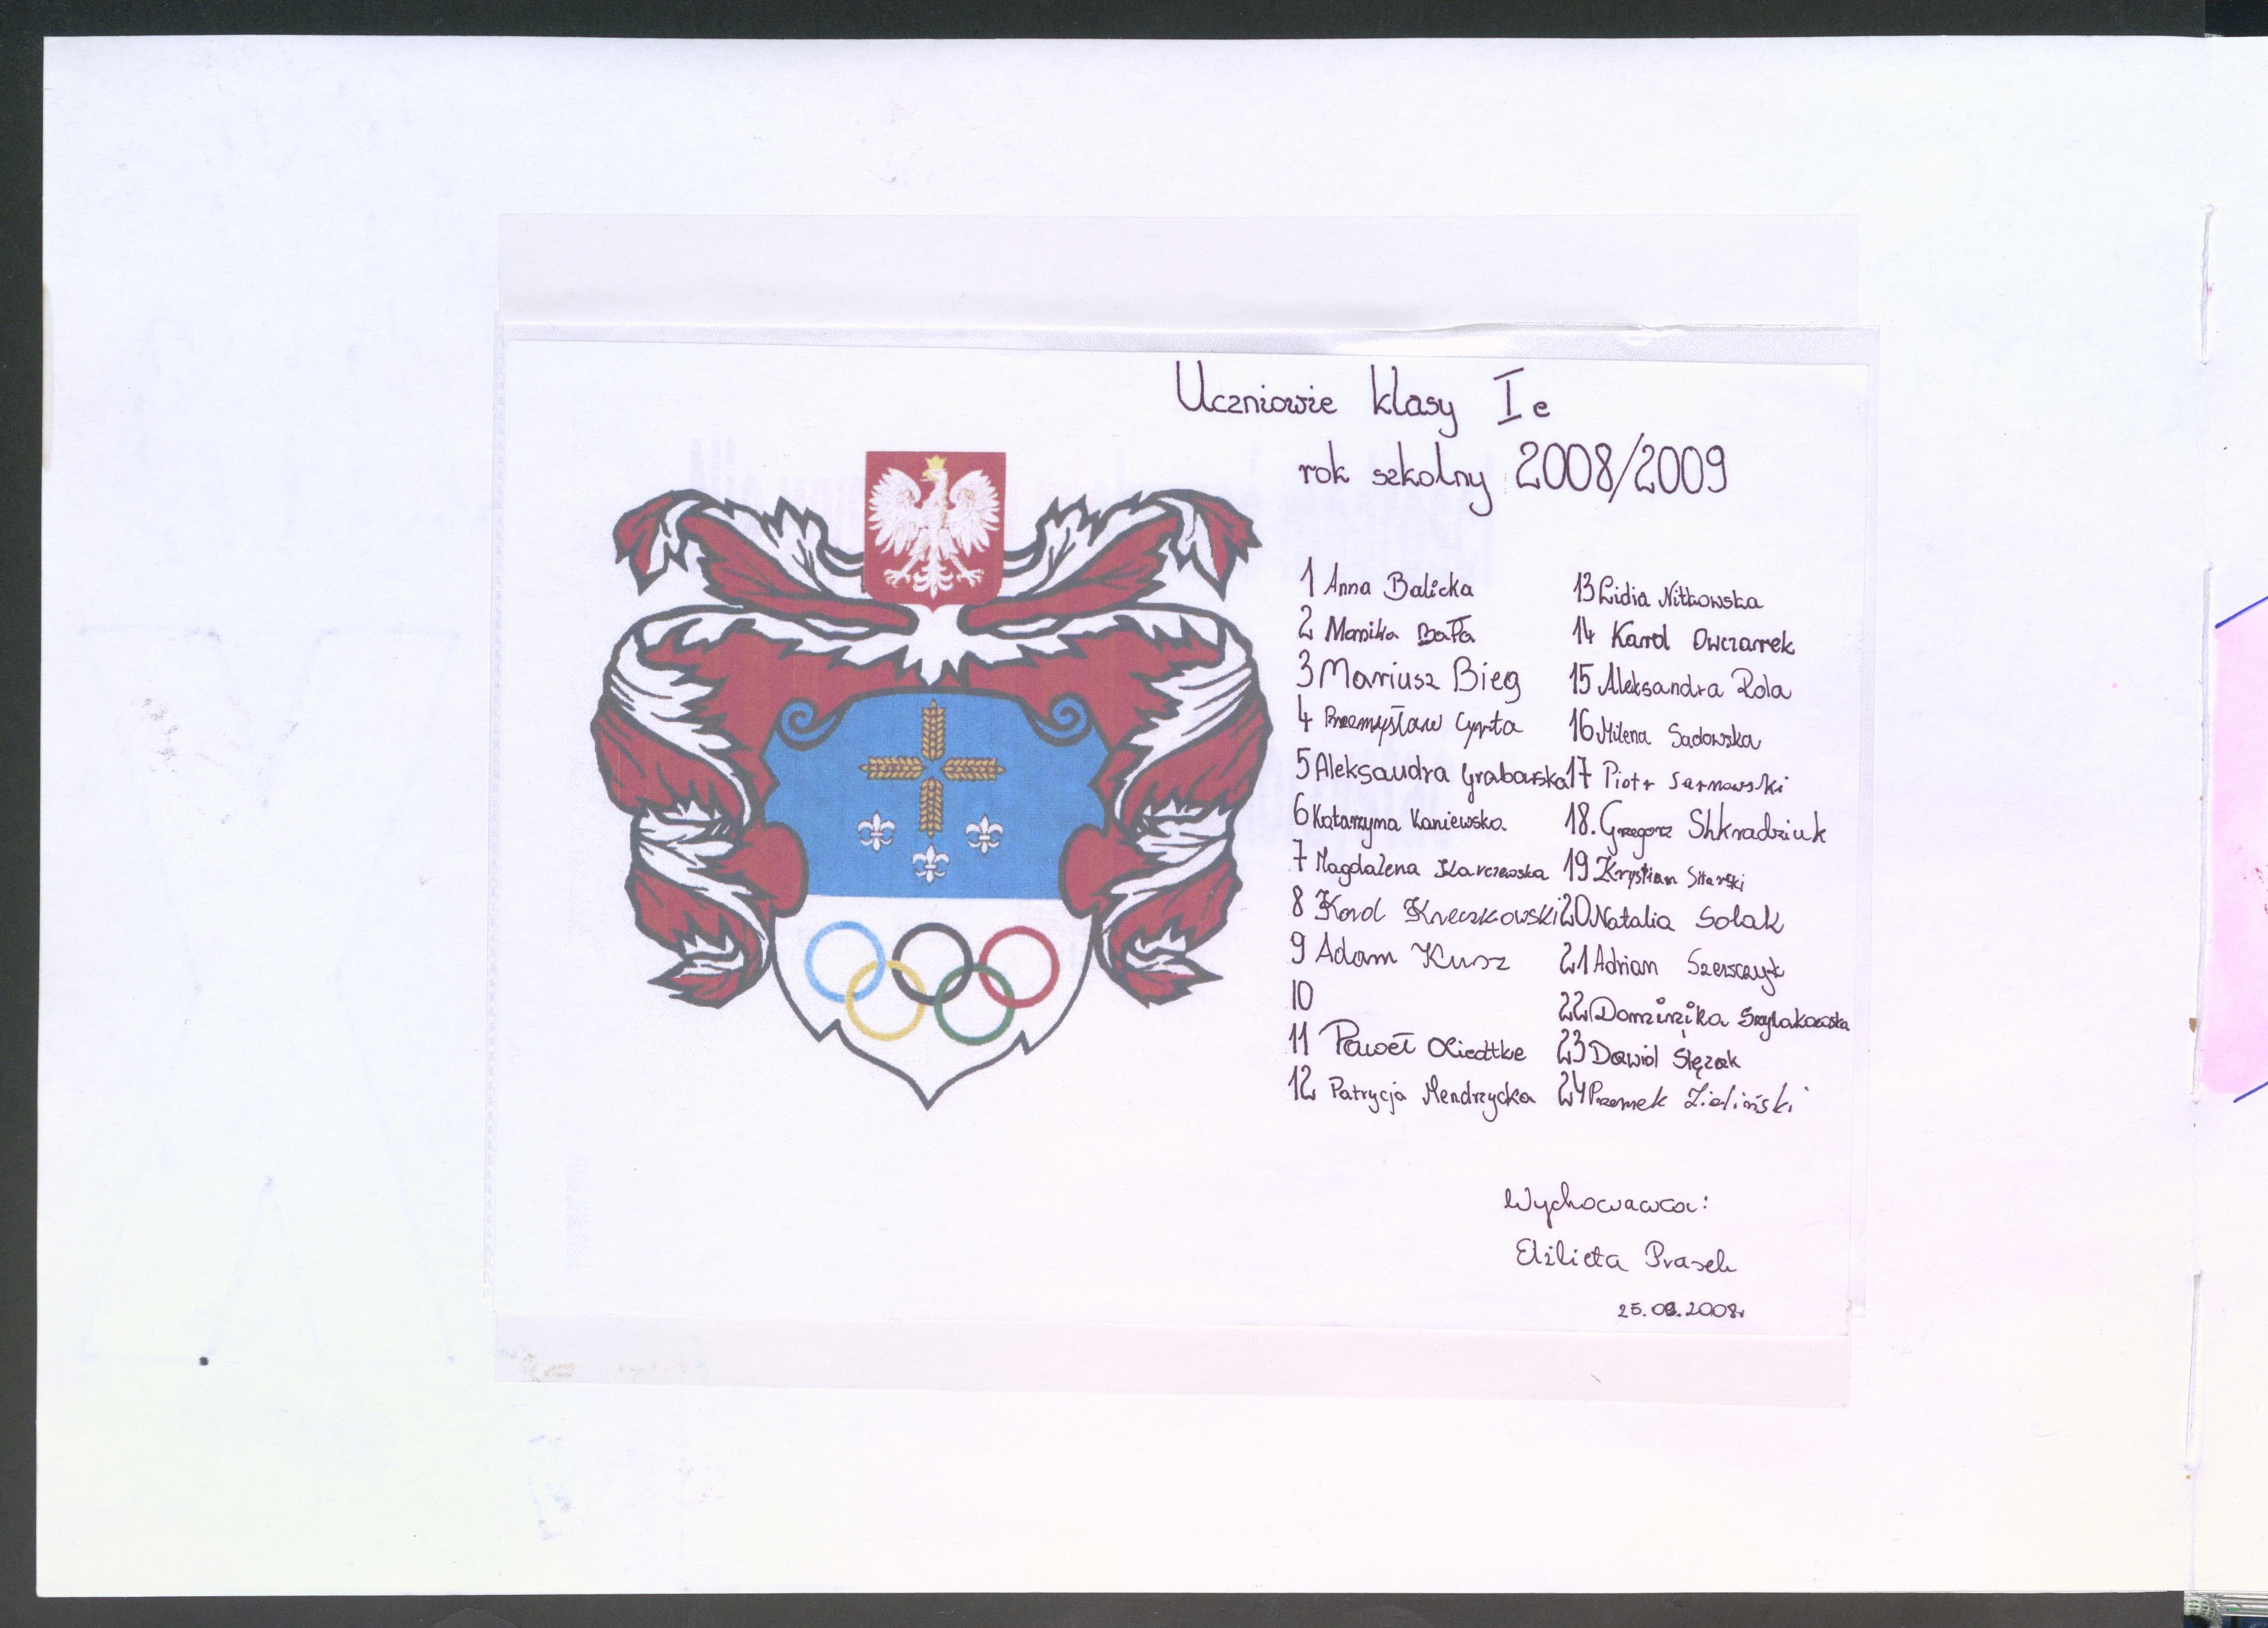 Uczniowie klasy I e
rok szkolny 2008/2009
1 Anna Balicka
2 Monika Bała
3 Mariusz Bieg
4 Przemysław Cyrta
5 Aleksandra Grabarska
6 Katarzyna Kaniewska
7 Magdalena Karczewska
8 Karol Kreczkowski
9 Adam Kusz
10
11 Paweł Liedtke
12 Patrycja Mendrzycka
13 Lidia Nitkowska
14 Karol Owczarek
15 Aleksandra Rola
16 Milena Sadowska
17 Piotr Sarnowski
18. Grzegorz Shkradziuk
19 Krystian Sitarski
20 Natalia Solak
21 Adrian
22 Dominika
23 Dawid Ślęzak
24 Przemek Zieliński
Wychowawca:
Elżbieta Prasek
25.09.2008r